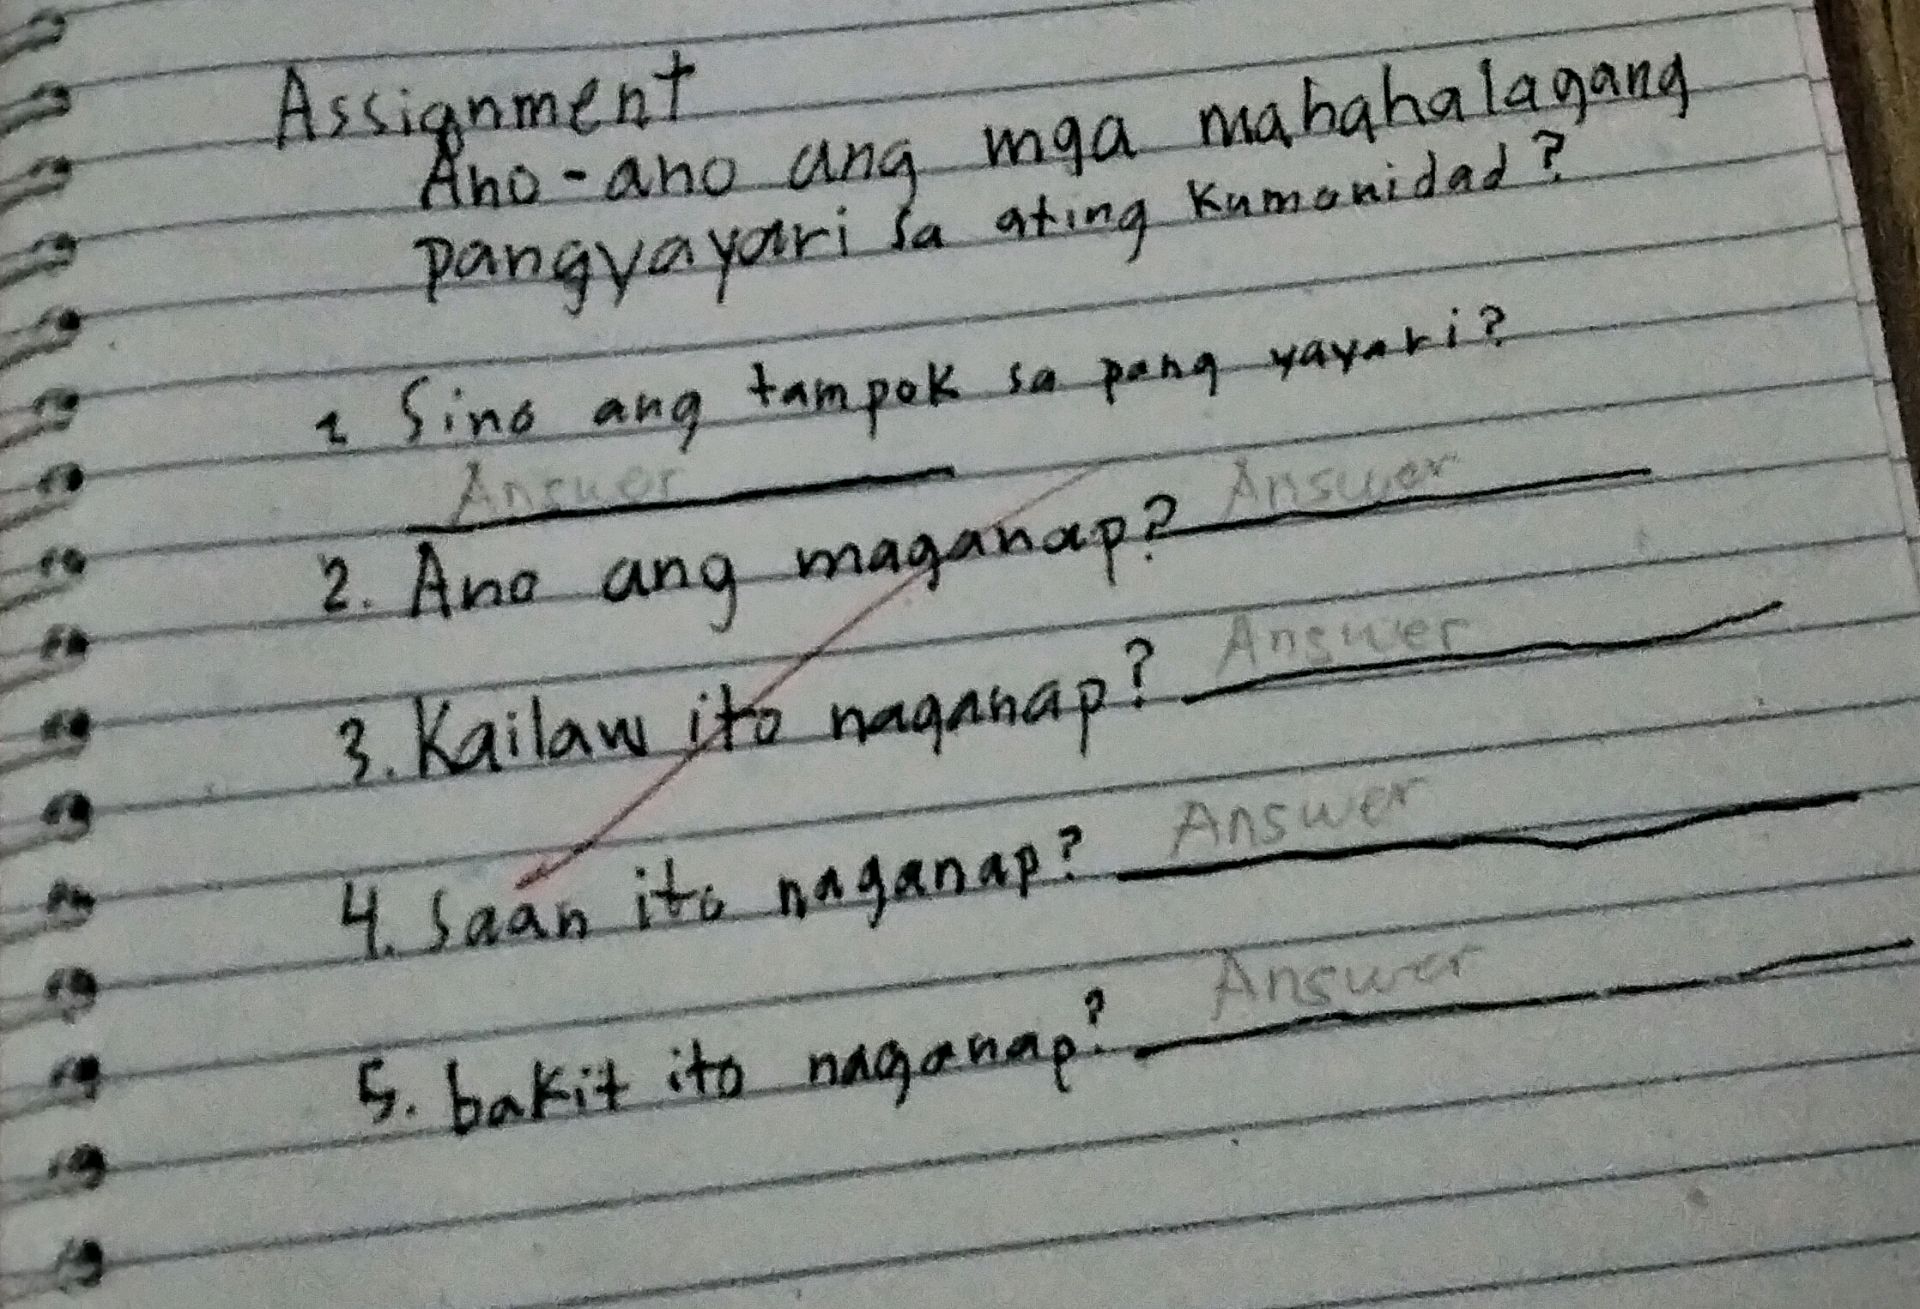 Assignment
Ano-ano ang mga mahahalagang
pangyayari sa ating Kumonidad?
1 Sino ang tampok sa pang yayari?
Answer
2. Ano ang maganap? Answer
3. Kailaw ito naganap? Answer
4. Saan ito naganap? Answer
5. bakit ito naganap? Answer